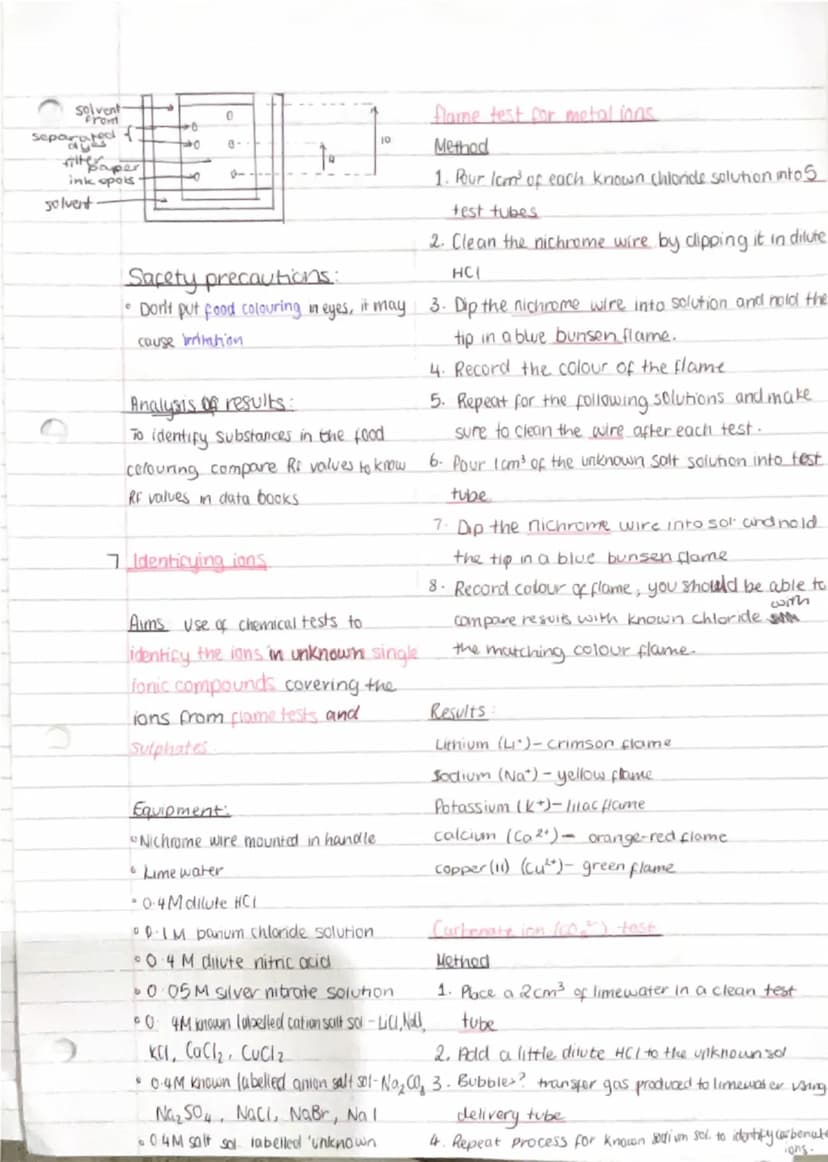 solvent
front
separated
dyes
filter
paper
ink spots
solvent
10
4
Safety precautions:
• Don't put food colouring in eyes, it may
cause irritation
Analysis of results:
To identify substances in the food
colouring compare Rf values to know
Rf values in data books
7 Identifying ions
Aims: Use of chemical tests to
identify the ions in unknown single
ionic compounds covering the
ions from flame tests and
sulphates
Equipment:
• Nichrome wire mounted in handle
• Limewater
• 0.4M dilute HCl
• 0.1M barium chloride solution
• 0.4 M dilute nitric acid
• 0.05M silver nitrate solution
• 0.4M known labelled cation salt sol - LiCl, NaCl,
KCl, CaCl₂, CuCl₂
• 0.4M known labelled anion salt sol - Na₂CO₃
Na₂SO₄, NaCl, NaBr, NaI
• 0.4M salt sol labelled 'unknown
flame test for metal ions
Method
1. Pour 1cm³ of each known chloride solution into 5
test tubes
2. Clean the nichrome wire by dipping it in dilute
HCl
3. Dip the nichrome wire into solution and hold the
tip in a blue bunsen flame.
4. Record the colour of the flame
5. Repeat for the following solutions and make
sure to clean the wire after each test.
6. Pour 1cm³ of the unknown salt solution into test
tube
7. Dip the nichrome wire into sol. and hold
the tip in a blue bunsen flame
8. Record colour of flame, you should be able to
compare results with known chloride with
the matching colour flame.
Results:
Lithium (Li⁺) - crimson flame
Sodium (Na⁺) - yellow flame
Potassium (K⁺) - lilac flame
calcium (Ca²⁺) - orange-red flame
copper (II) (Cu²⁺) - green flame
Carbonate ion (CO₃²⁻) test
Method
1. Place a 2cm³ of limewater in a clean test
tube
2. Add a little dilute HCl to the unknown sol
3. Bubbles? transfer gas produced to limewater using
delivery tube
4. Repeat process for known sodium sol. to identify carbonate
ions.